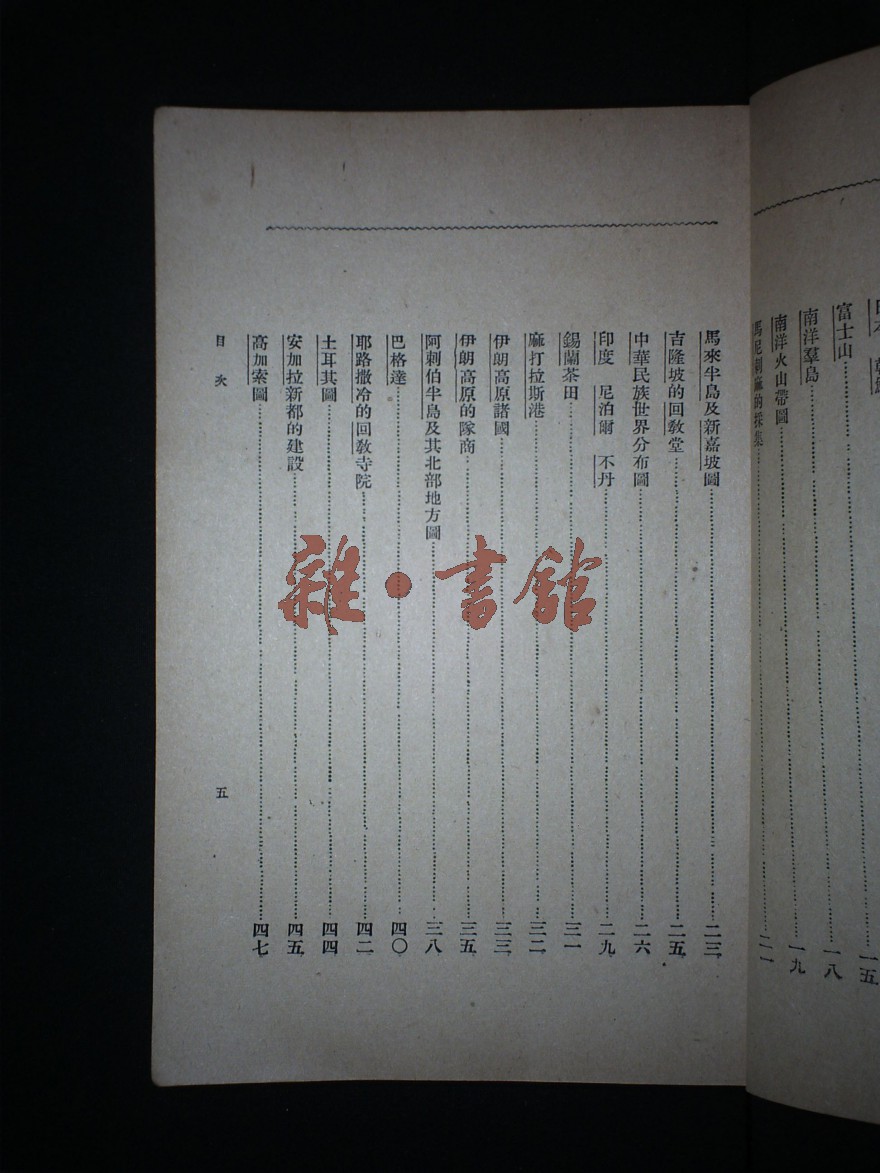 富士山 一八
南洋羣島 一九
南洋火山帶圖
馬尼剌麻的採集 二一
馬來半島及新嘉坡圖 二三
吉隆坡的回教堂 二五
中華民族世界分布圖 二六
印度 尼泊爾 不丹 二九
錫蘭茶田 三一
麻打拉斯港 三二
伊朗高原諸國 三三
伊朗高原的隊商 三五
阿剌伯半島及其北部地方圖 三八
巴格達 四〇
耶路撒冷的回教寺院 四二
土耳其圖 四四
安加拉新都的建設 四五
高加索圖 四七
目次
五
雜·書館